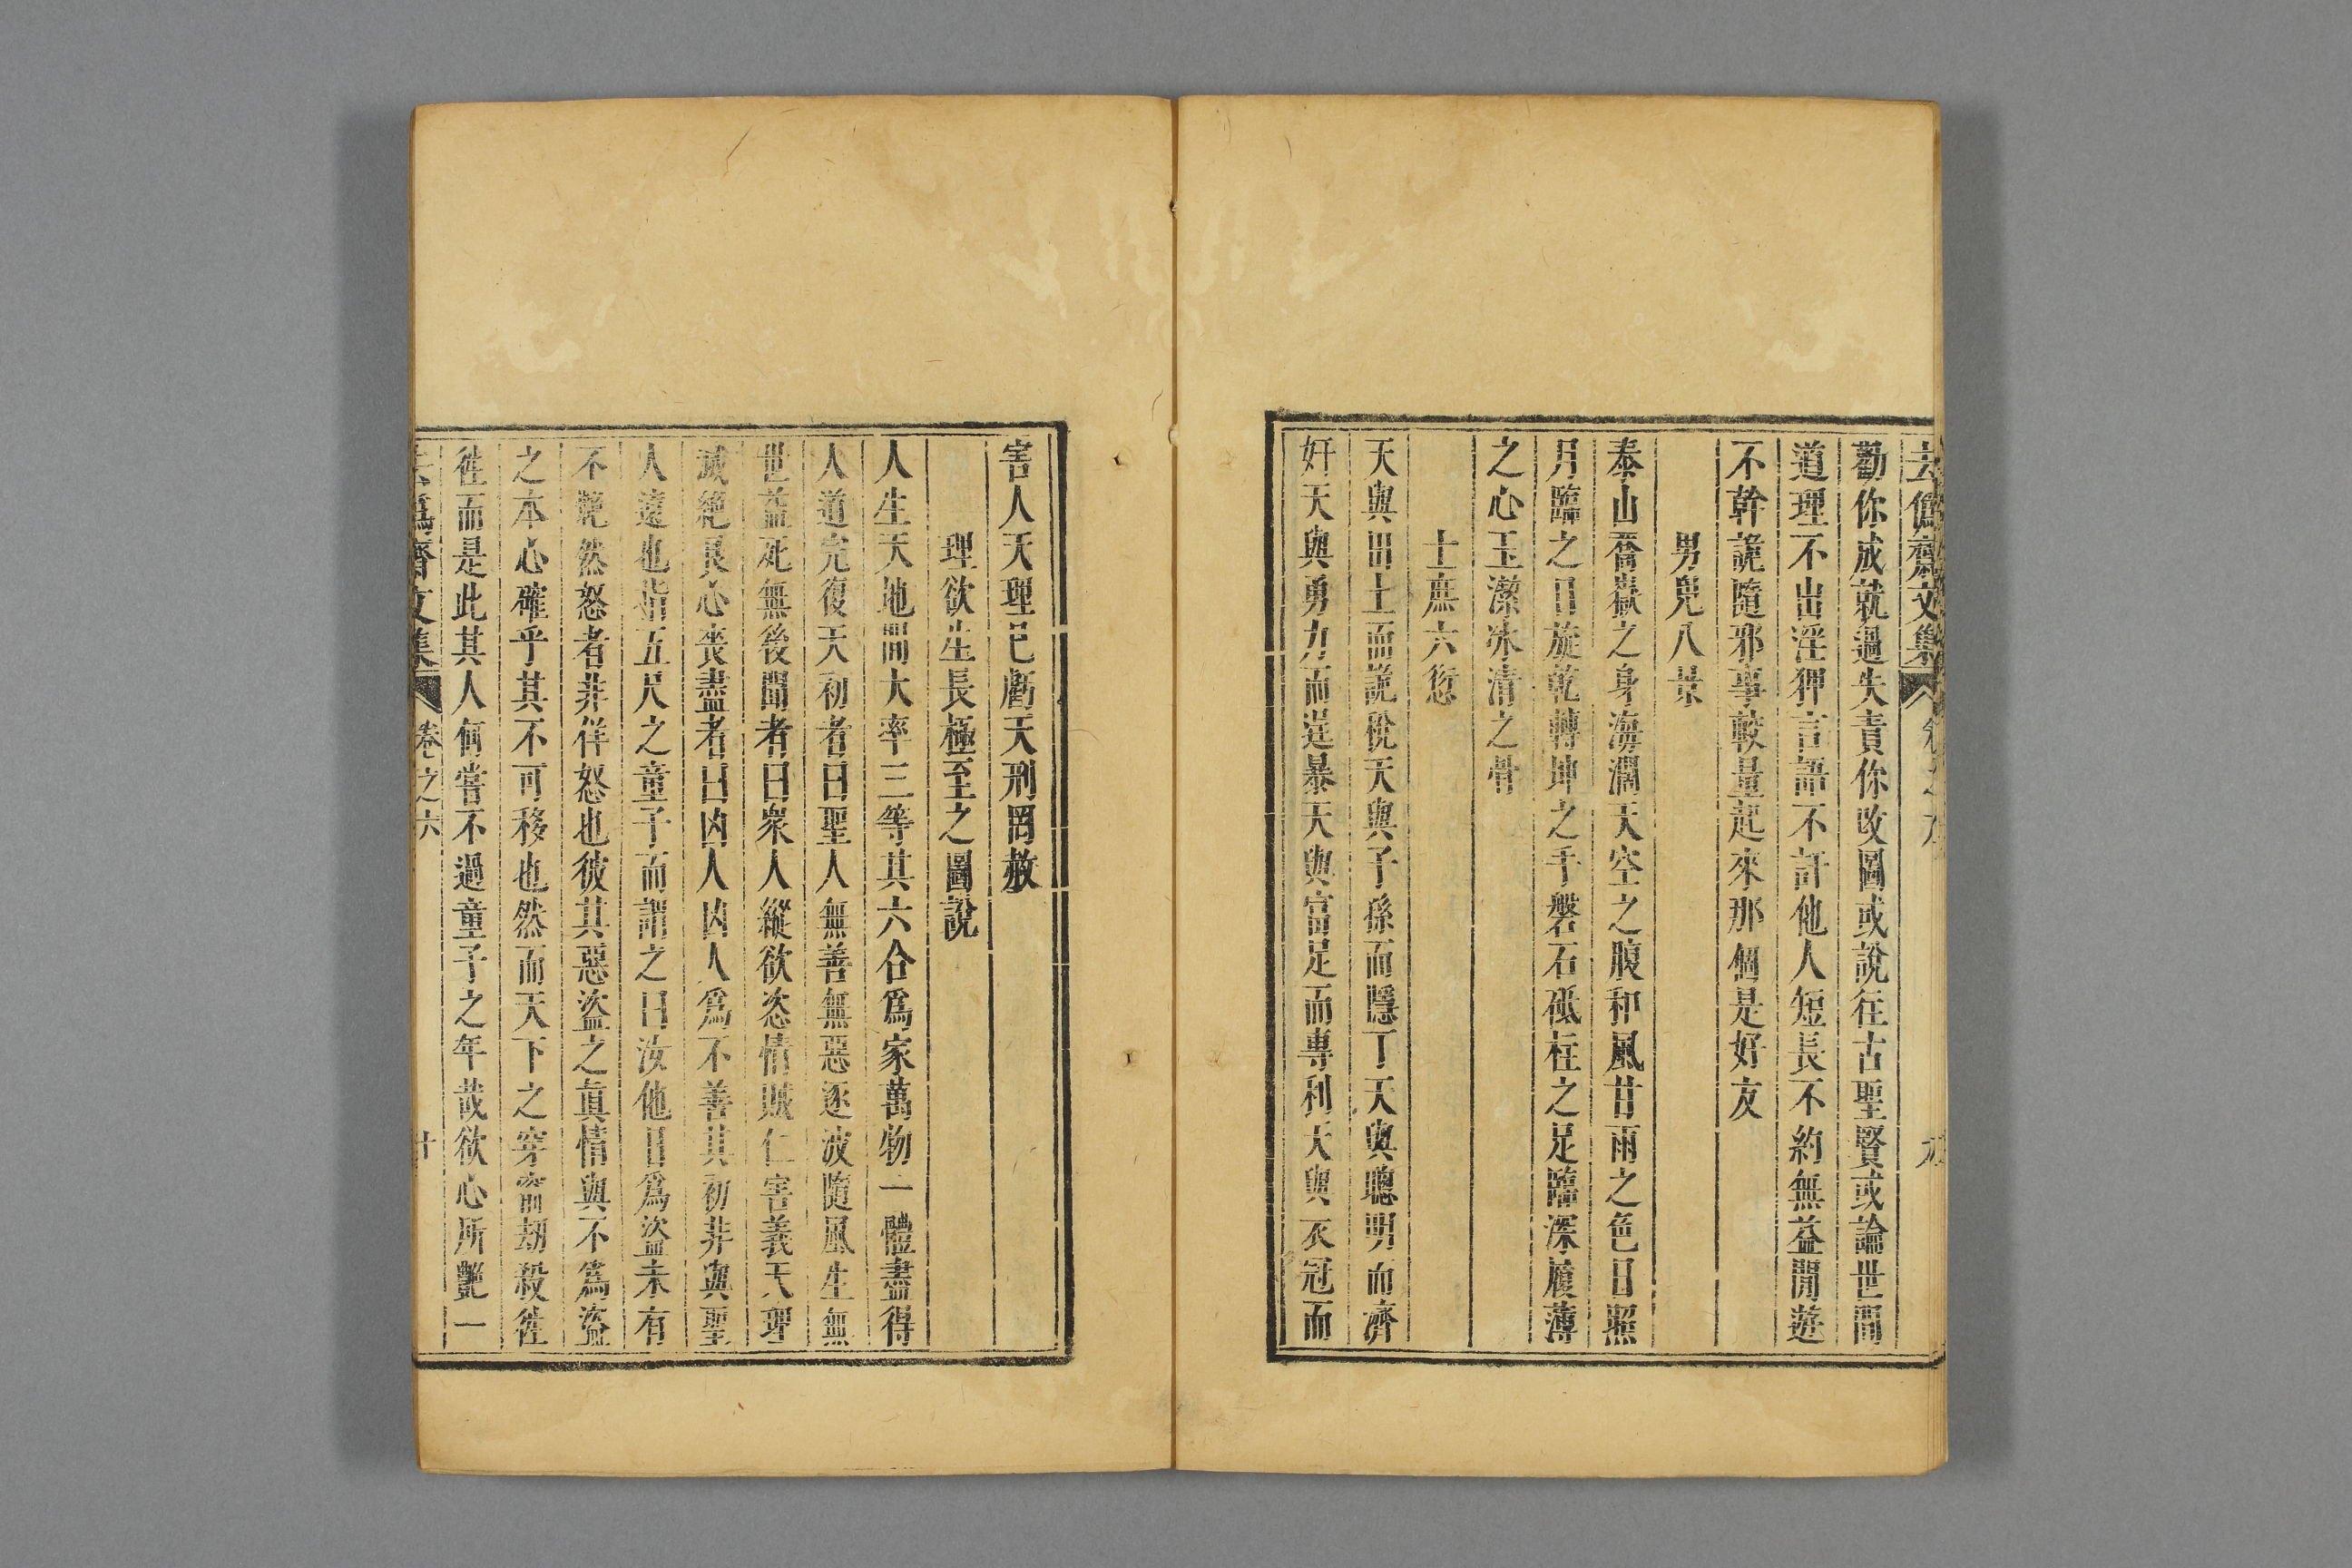 去僞齋文集 卷之六 九
勸你成就過失責你改圖或說往古聖賢或論世間
道理不出淫狎言語不訐他人短長不約無益閒遊
不幹詭隨邪事較量起來那個是好友
男兒八景
泰山喬嶽之身海濶天空之腹和風甘雨之色日照
月臨之目旋乾轉坤之手磐石砥柱之足臨深履薄
之心玉潔氷清之骨
士庶六愆
天與田土而詭稅天與子孫而隱丁天與聰明而濟
奸天與勇力而逞暴天與富足而專利天與衣冠而
害人天理已虧天刑罔赦
理欲生長極至之圖說
人生天地間大率三等其六合爲家萬物一體盡得
人道完復天初者曰聖人無善無惡逐波隨風生無
世益死無後聞者曰衆人縱欲恣情賊仁害義天理
滅絕良心喪盡者曰凶人凶人爲不善其初非與聖
人遠也指五尺之童子而謂之曰汝他日爲盜未有
不艴然怒者非佯怒也彼其惡盜之眞情與不爲盜
之本心確乎其不可移也然而天下之穿窬刼殺徃
徃而是此其人何嘗不過童子之年哉欲心所艷一
去僞齋文集 卷之六 十